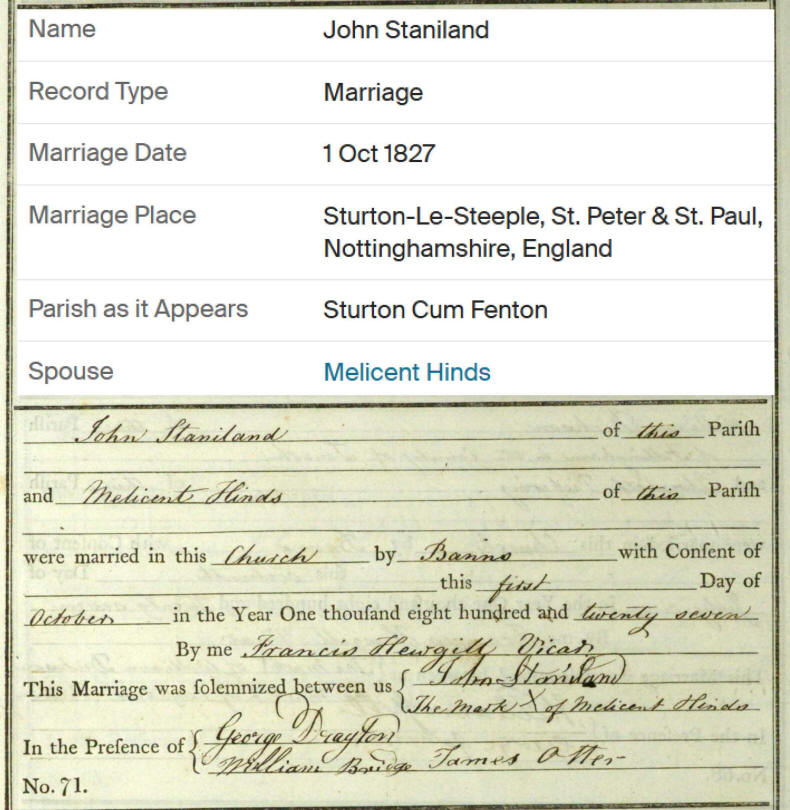 Name John Staniland
Record Type Marriage
Marriage Date 1 Oct 1827
Marriage Place Sturton-Le-Steeple, St. Peter & St. Paul,
Nottinghamshire, England
Parish as it Appears Sturton Cum Fenton
Spouse Melicent Hinds
John Staniland of this Pariſh
and Melicent Hinds of this Pariſh
were married in this Church by Banns with Conſent of
this first Day of
October in the Year One thouſand eight hundred and twenty seven
By me Francis Hewgill Vicar
This Marriage was ſolemnized between us { John Staniland
The Mark X of Melicent Hinds
In the Preſence of { George Drayton
William Bridge James Otter
No. 71.